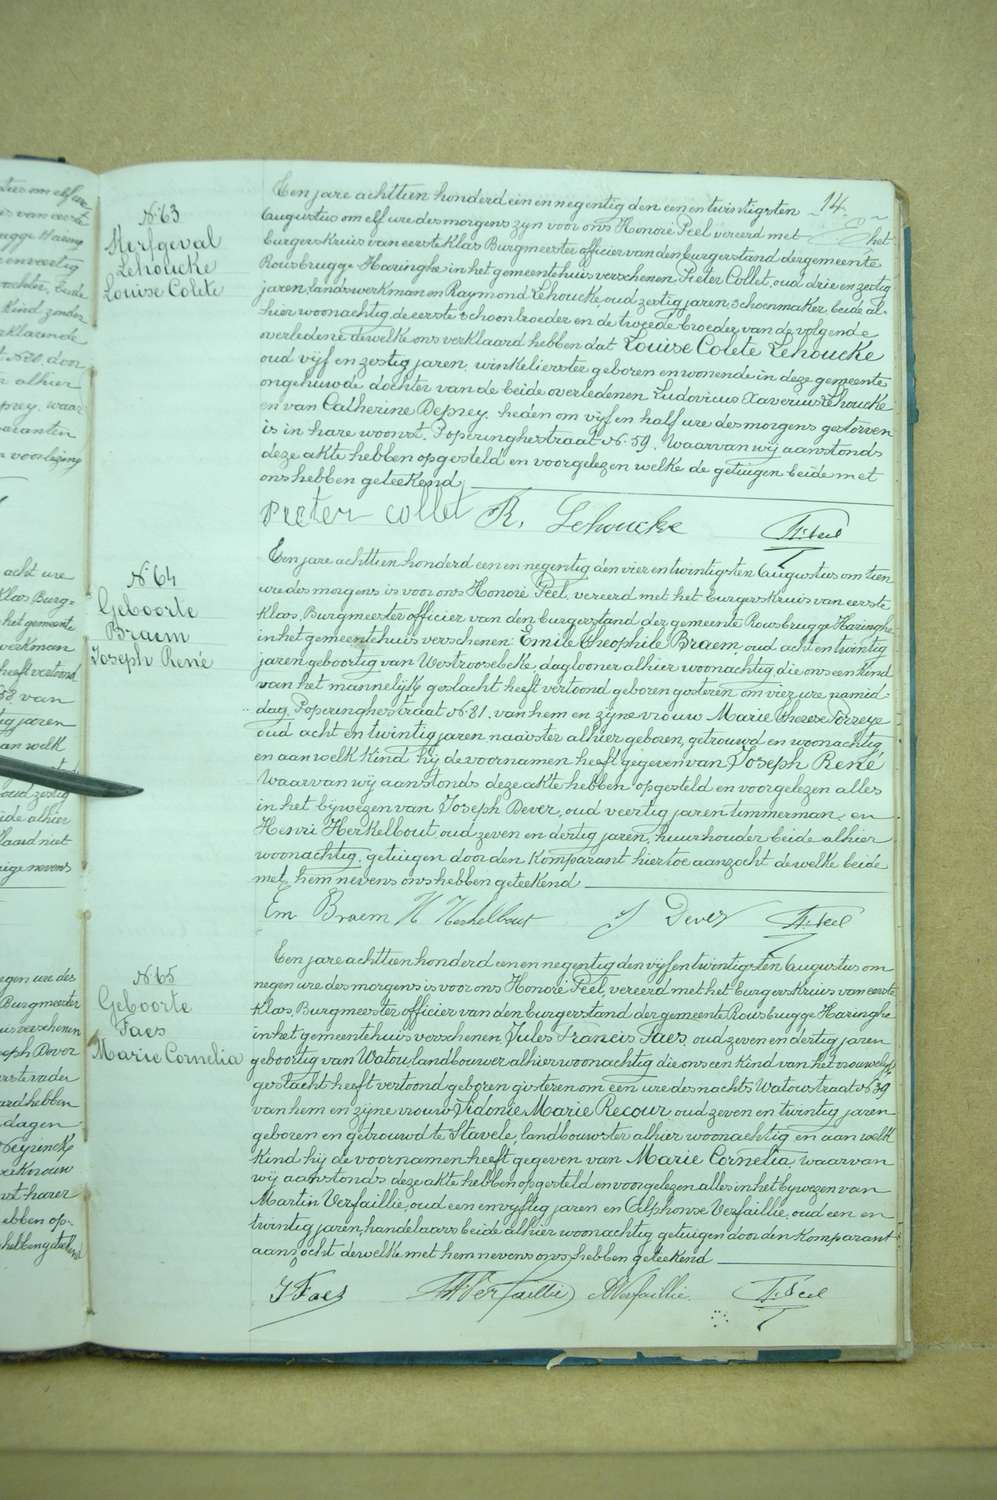 14
N. 63
Sterfgeval
Lehoucke
Louise Colete
Een jare achttien honderd een en negentig den een en twintigsten
Augustus om elf ure des morgens zijn voor ons Honoré Peel vereerd met het
burgerskruis van eerste klas Burgmeester officier van den burgerstand der gemeente
Rousbrugge Haringhe in het gemeentehuis verschenen Pieter Collet, oud drie en zestig
jaren, landswerkman en Raymond Lehoucke, oud zestig jaren, schoenmaker, beide al-
hier woonachtig, de eerste schoonbroeder en de tweede broeder van de volgende
overledene dewelke ons verklaard hebben dat Louise Colete Lehoucke
oud vijf en zestig jaren, winkelierster geboren en wonende in deze gemeente
ongehuwde dochter van de beide overledenen Ludovicus Xaverius Lehoucke
en van Catherine Deprey, heden om vijf en half ure des morgens gestorven
is in hare woonst, Poperinghestraat N. 59. Waarvan wij aanstonds
deze akte hebben opgesteld en voorgelezen welke de getuigen beide met
ons hebben geteekend
Pieter Collet R. Lehoucke H. Peel
N. 64
Geboorte
Braem
Joseph René
Een jare achttien honderd een en negentig den vier en twintigsten Augustus om tien
ure des morgens is voor ons Honoré Peel, vereerd met het burgerskruis van eerste
klas, Burgmeester officier van den burgerstand der gemeente Rousbrugge Haringhe
in het gemeentehuis verschenen Emile Theophile Braem, oud acht en twintig
jaren geboortig van Westroosebeke daglooner alhier woonachtig, die ons een kind
van het mannelijk geslacht heeft vertoond geboren gisteren om vier ure namid-
dag, Poperinghestraat N. 81. van hem en zijne vrouw Marie Therese Perzeye
oud acht en twintig jaren naaister alhier geboren, getrouwd en woonachtig
en aan welk kind hij de voornamen heeft gegeven van Joseph René
Waarvan wij aanstonds deze akte hebben opgesteld en voorgelezen alles
in het bijwezen van Joseph Dever, oud veertig jaren timmerman en
Henri Herkelbout, oud zeven en dertig jaren, huurhouder beide alhier
woonachtig, getuigen door den komparant hiertoe aanzocht dewelke beide
met hem nevens ons hebben geteekend
Em Braem H Herkelbout J Dever H. Peel
N. 65
Geboorte
Faes
Marie Cornelia
Een jare achttien honderd een en negentig den vijf en twintigsten Augustus om
negen ure des morgens is voor ons Honoré Peel, vereerd met het burgerskruis van eerste
klas, Burgmeester officier van den burgerstand der gemeente Rousbrugge Haringhe
in het gemeentehuis verschenen Jules Francis Faes, oud zeven en dertig jaren
geboortig van Watou, landbouwer alhier woonachtig die ons een kind van het vrouwelijk
geslacht heeft vertoond geboren gisteren om een ure des nachts Watoustraat N. 39
van hem en zijne vrouw Sidonie Marie Recour oud zeven en twintig jaren
geboren en getrouwd te Stavele, landbouwster alhier woonachtig en aan welk
kind hij de voornamen heeft gegeven van Marie Cornelia, waarvan
wij aanstonds deze akte hebben opgesteld en voorgelezen alles in het bijwezen van
Martin Verfaillie, oud een en vijftig jaren en Alphonse Verfaillie, oud een en
twintig jaren, handelaars beide alhier woonachtig getuigen door den komparant
aanzocht dewelke met hem nevens ons hebben geteekend
J Faes M. Verfaillie A Verfaillie H. Peel